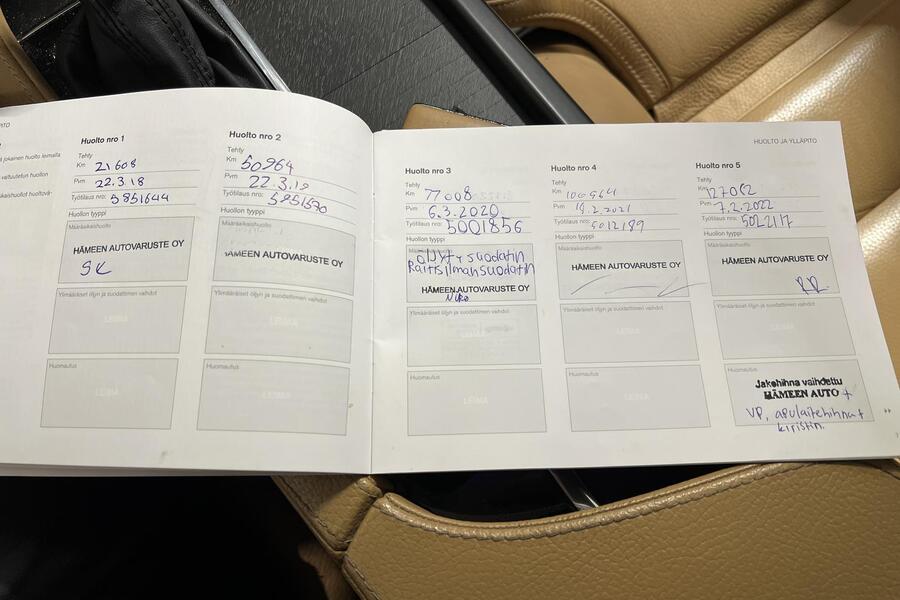 PITO
jokainen huolto leimalla
valtuutetun huollon
Huolto nro 1
Tehty
Km 21608
Pvm 22.3.18
Työtilaus nro: 5851644
Huollon tyyppi
Määräaikaishuolto
HÄMEEN AUTOVARUSTE OY
SK
Ylimääräiset öljyn ja suodattimen vaihdot
LEIMA
Huomautus
LEIMA
Huolto nro 2
Tehty
Km 50964
Pvm 22.3.19
Työtilaus nro:
Huollon tyyppi
Määräaikaishuolto
HÄMEEN AUTOVARUSTE OY
Ylimääräiset öljyn ja suodattimen vaihdot
LEIMA
Huomautus
LEIMA
HUOLTO JA YLLÄPITO
Huolto nro 3
Tehty
Km 77008
Pvm 6.3.2020
Työtilaus nro: 5001856
Huollon tyyppi
Määräaikaishuolto
Öljy + suodatin
Raitisilmansuodatin
HÄMEEN AUTOVARUSTE OY
Niko
Ylimääräiset öljyn ja suodattimen vaihdot
LEIMA
Huomautus
LEIMA
Huolto nro 4
Tehty
Km
Pvm 19.2.2021
Työtilaus nro: 5012189
Huollon tyyppi
Määräaikaishuolto
HÄMEEN AUTOVARUSTE OY
Ylimääräiset öljyn ja suodattimen vaihdot
LEIMA
Huomautus
LEIMA
Huolto nro 5
Tehty
Km 127082
Pvm 7.2.2022
Työtilaus nro: 5022117
Huollon tyyppi
Määräaikaishuolto
HÄMEEN AUTOVARUSTE OY
Ylimääräiset öljyn ja suodattimen vaihdot
LEIMA
Huomautus
Jakohihna vaihdettu
HÄMEEN AUTO +
VP, apulaitehihna +
kiristin.